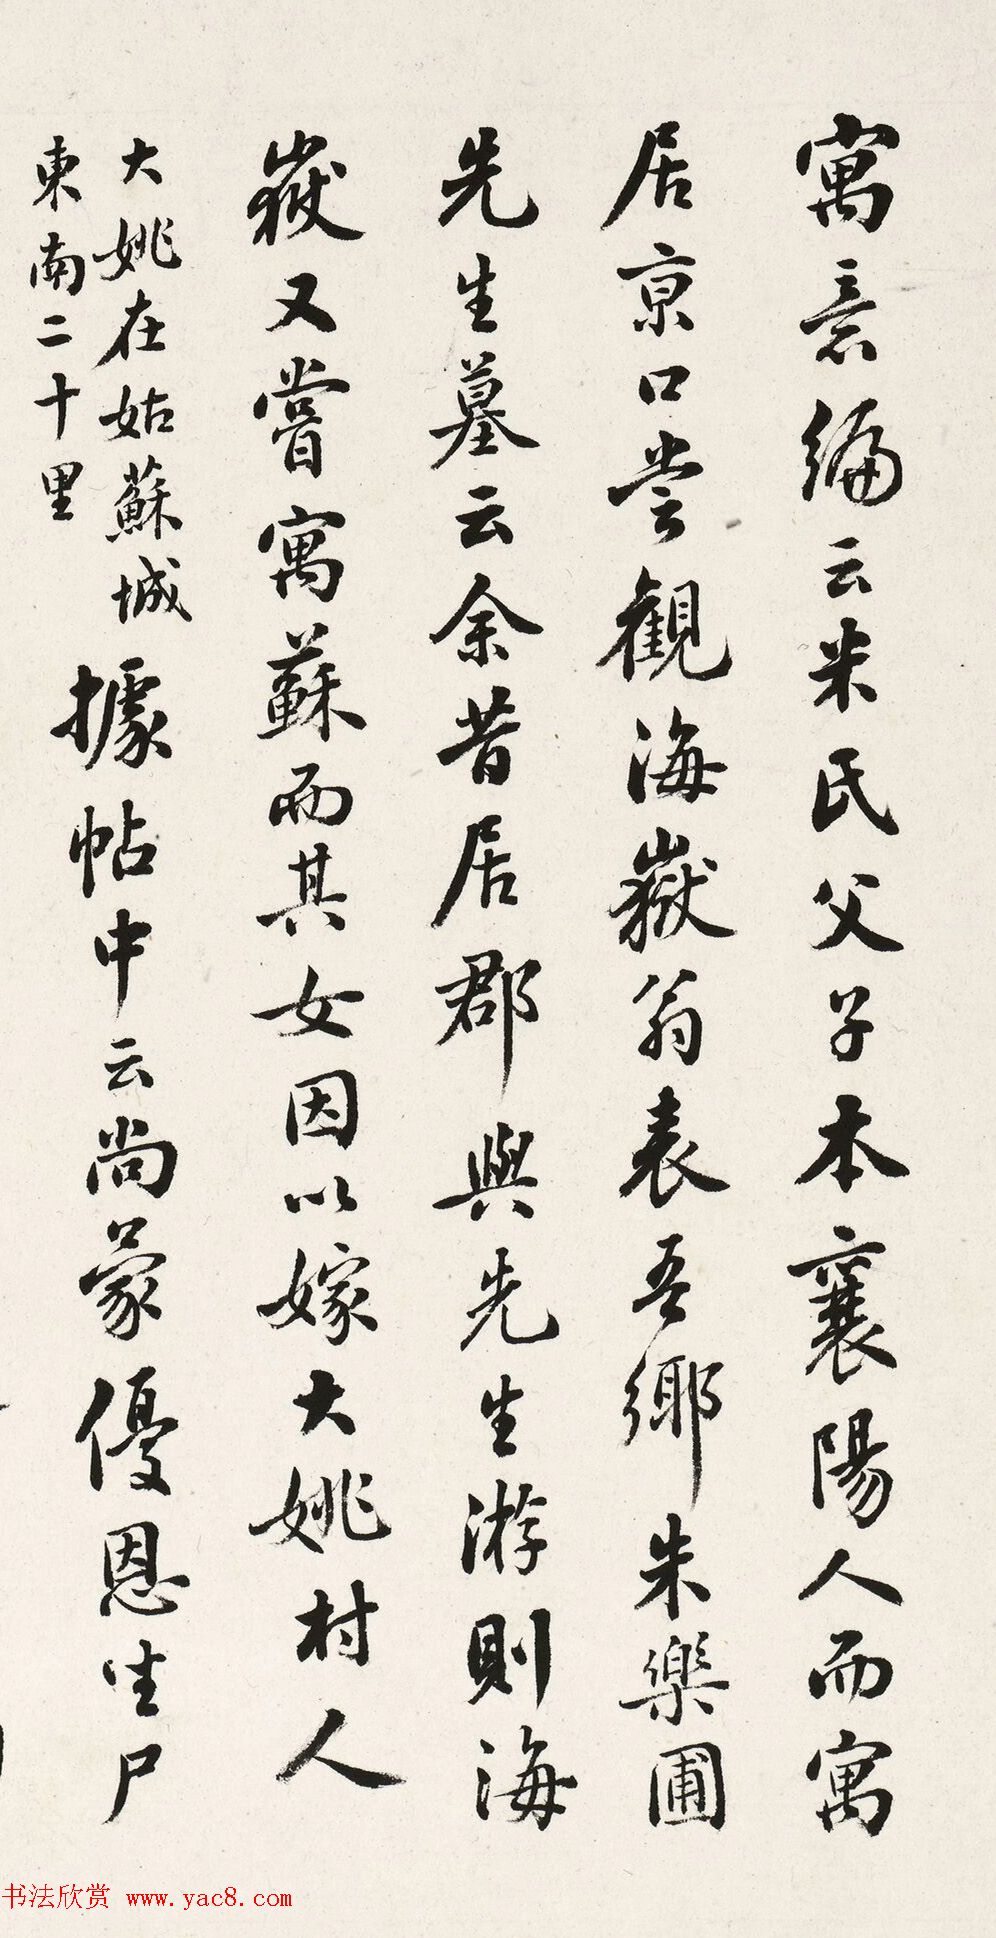 寓意編云米氏父子本襄陽人而寓
居京口嘗觀海嶽翁表吾鄉朱樂圃
先生墓云余昔居郡與先生游則海
嶽又嘗寓蘇而其女因以嫁大姚村人
大姚在姑蘇城
東南二十里
據帖中云尚蒙優恩生尸
书法欣赏 www.yac8.com